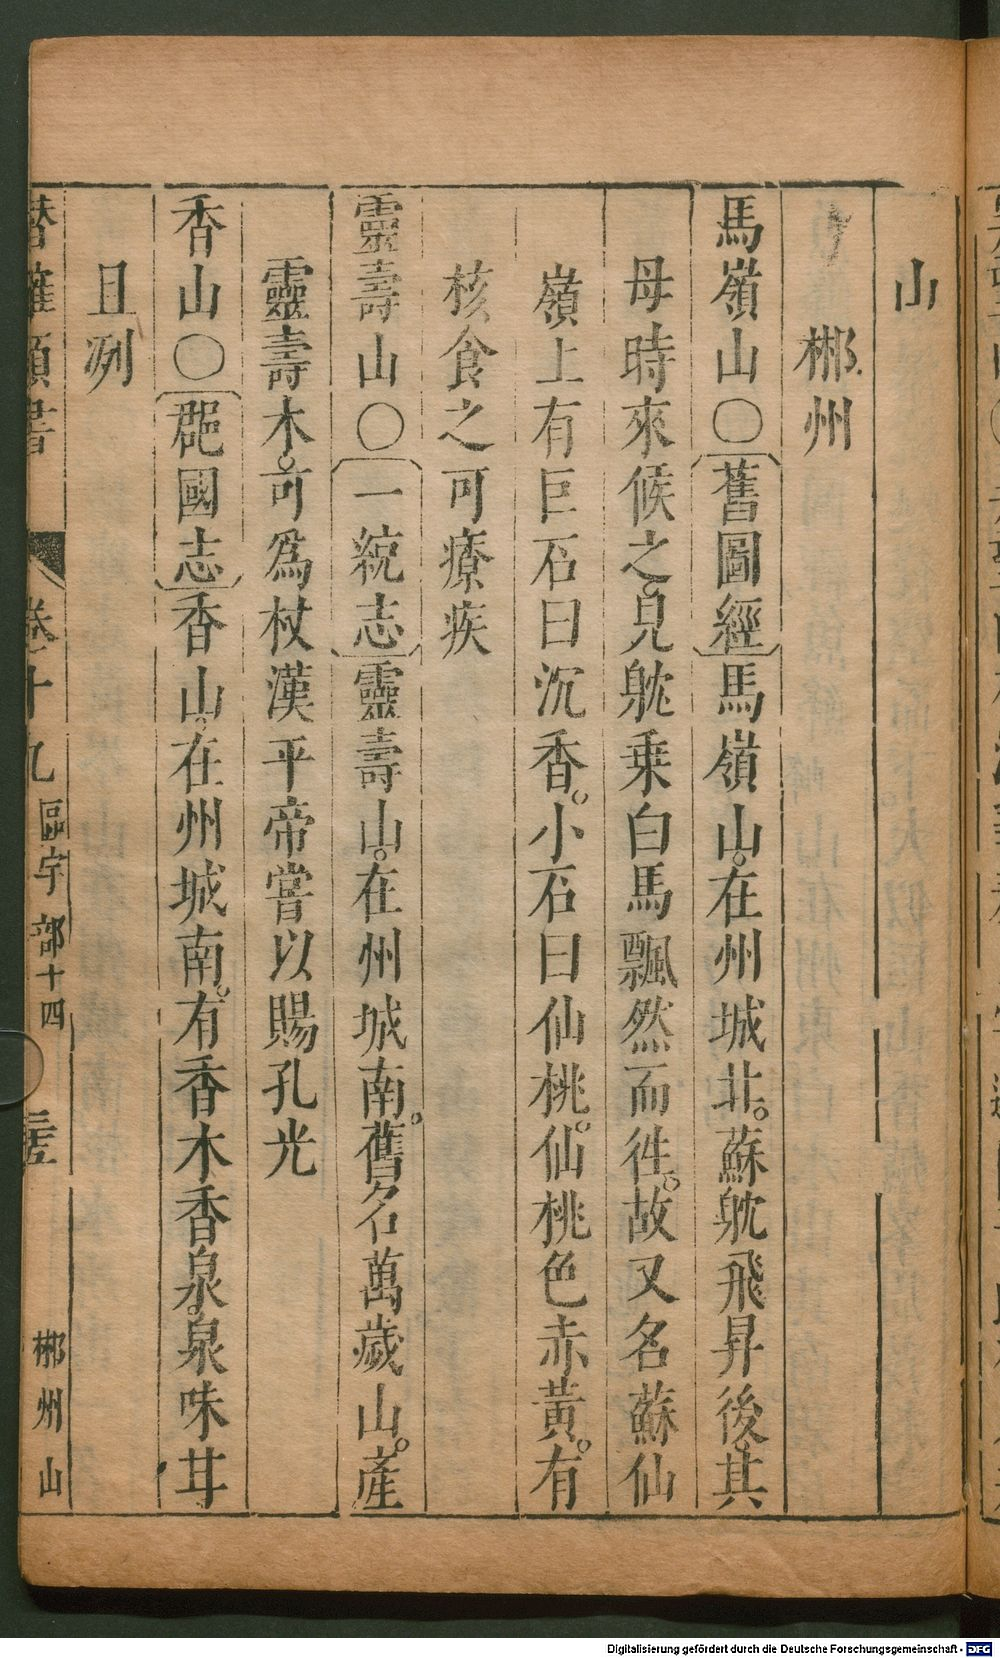 山
郴州
馬嶺山○〔舊圖經〕馬嶺山。在州城北。蘇躭飛昇後。其
母時來候之。見躭乗白馬飄然而徃。故又名蘇仙
嶺上有巨石曰沉香。小石曰仙桃。仙桃色赤黄。有
核食之可療疾
靈壽山○〔一統志〕靈壽山。在州城南。舊名萬歲山。產
靈壽木。可爲杖漢平帝嘗以賜孔光
香山○〔郡國志〕香山。在州城南。有香木香泉。泉味甘
且冽
類書 卷十九 區宇部十四 郴州山
Digitalisierung gefördert durch die Deutsche Forschungsgemeinschaft - DFG